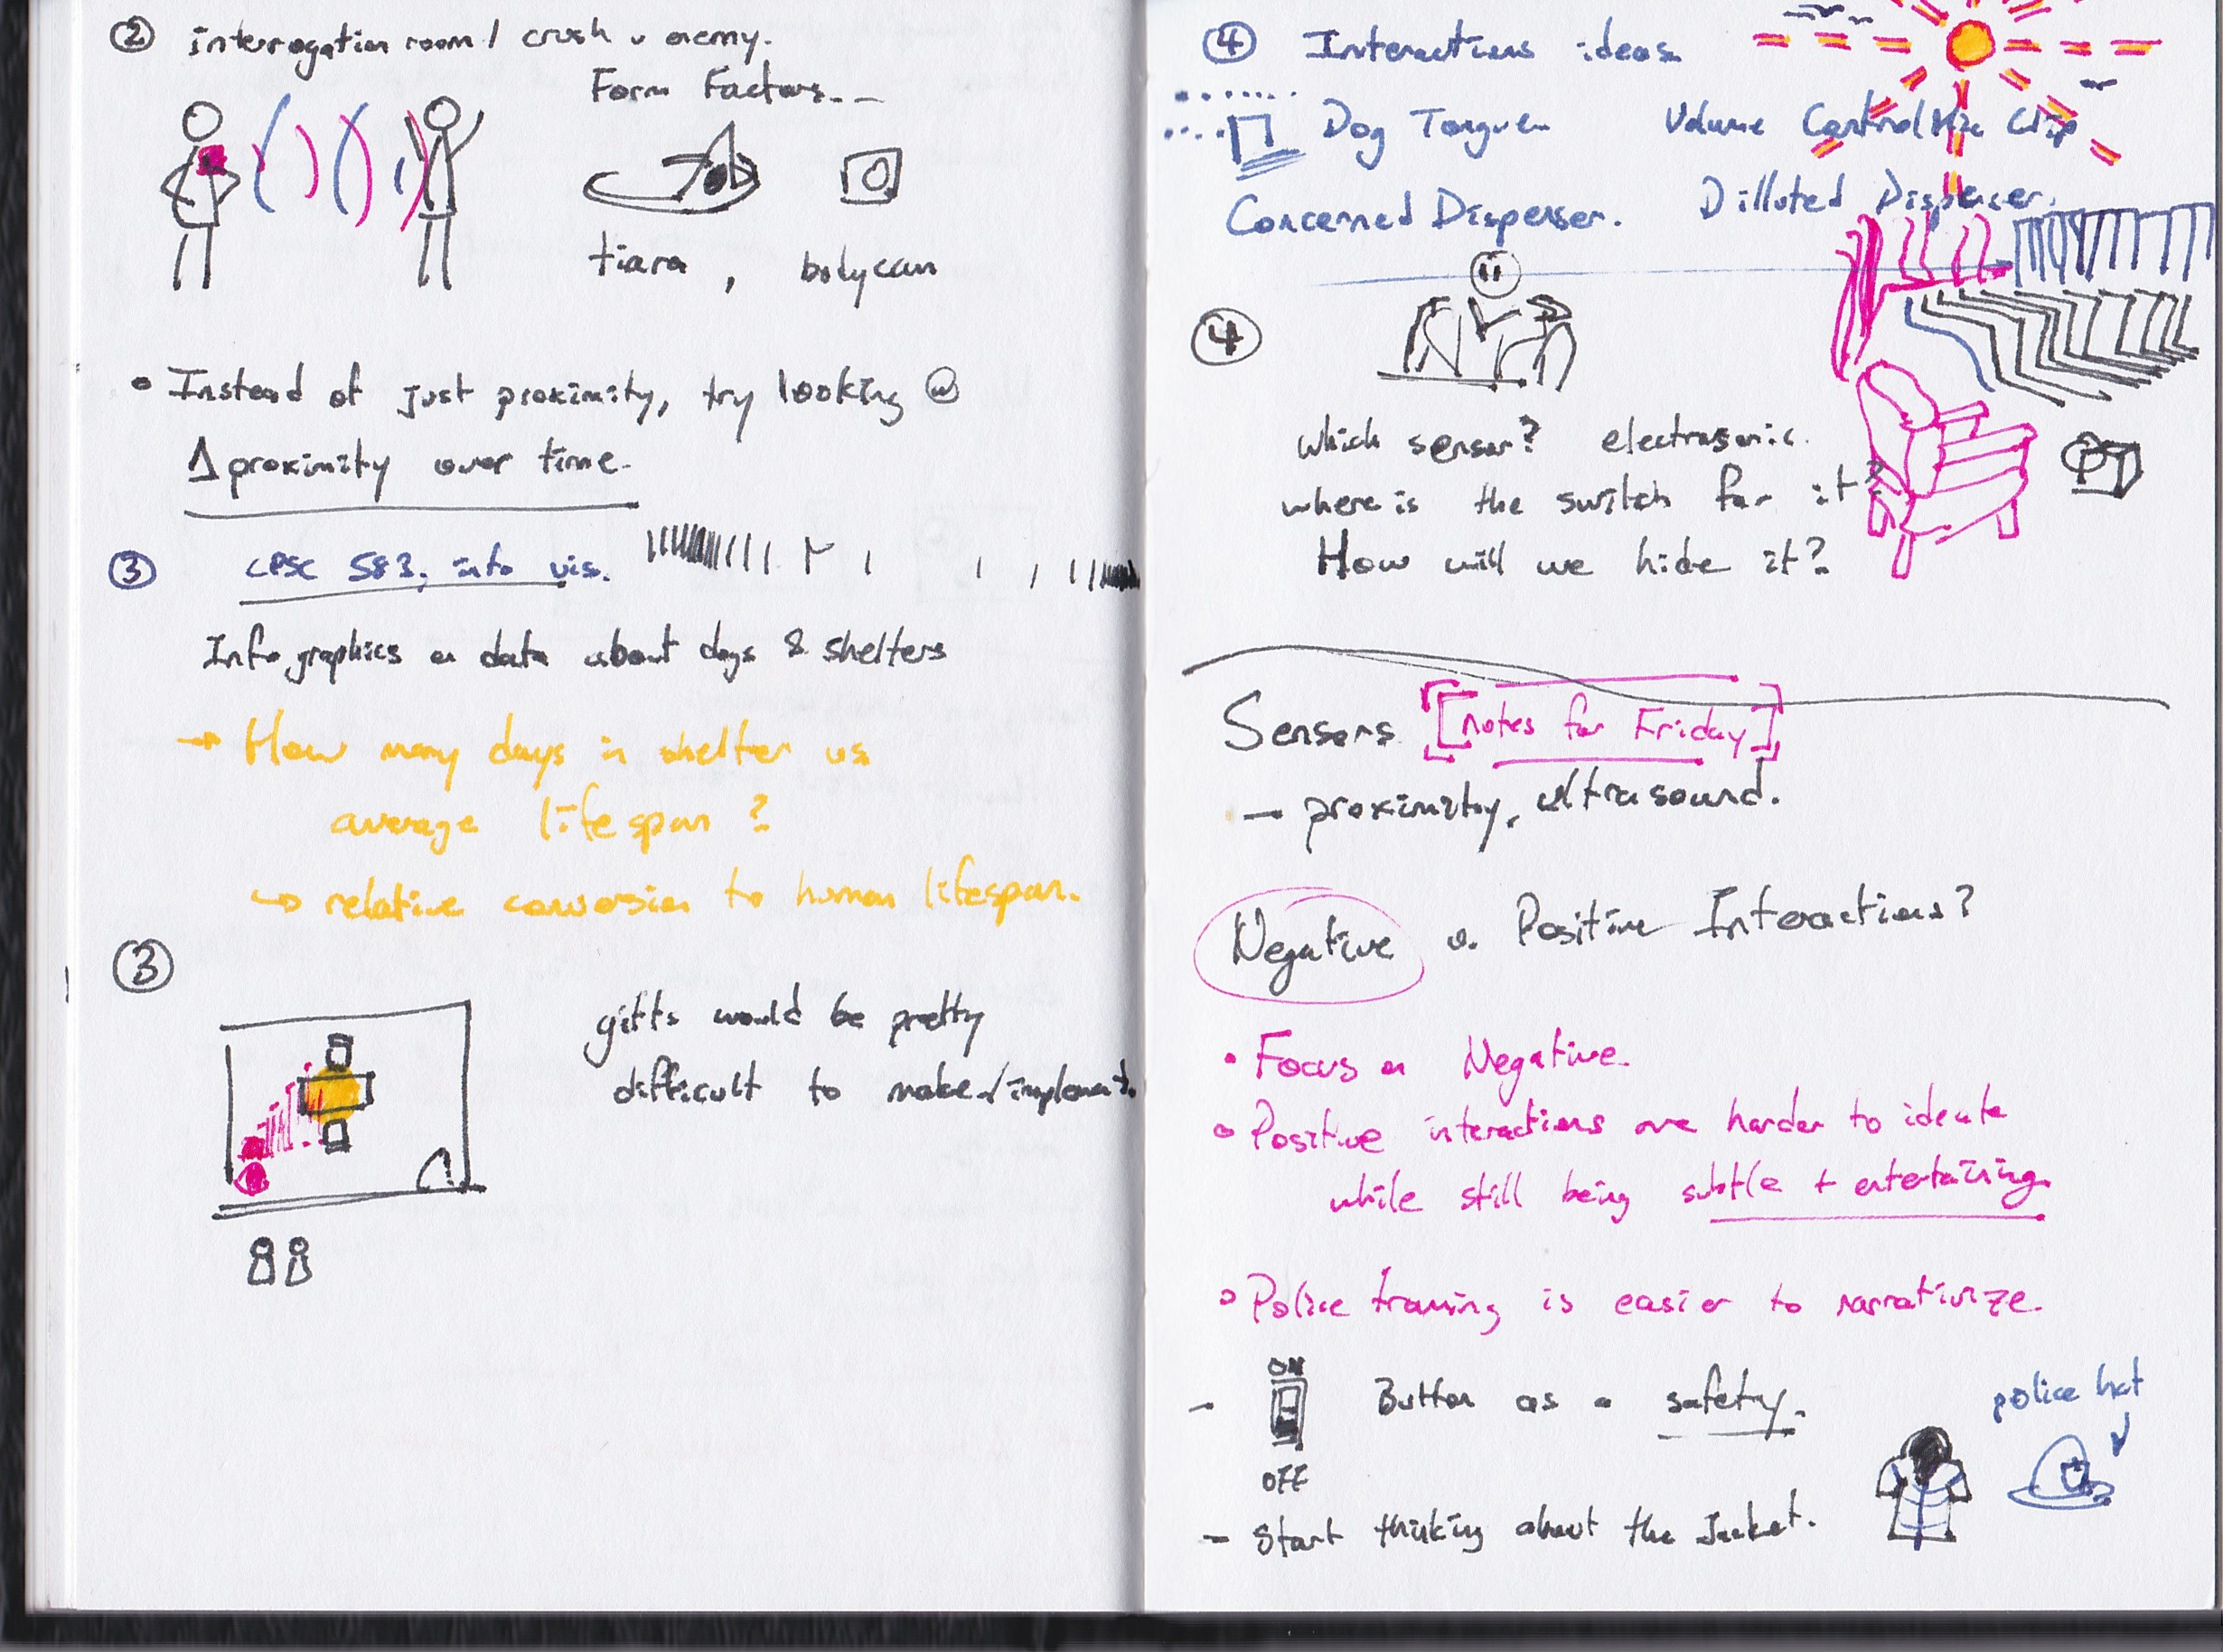 ② interrogation room / crush v enemy.
Form Factors...
tiara, bodycam
• Instead of just proximity, try looking @
Δ proximity over time.
③ CPSC 583, info vis.
Infographics on data about dogs & shelters
→ How many days in shelter vs
average lifespan?
↳ relative conversion to human lifespan.
③
gifts would be pretty
difficult to make/implement.
④ Interactions ideas
Dog Tongue Volume Control Mic Clip
Concerned Dispenser. Dilluted Dispencer.
④
which sensor? electrasonic.
where is the switch for it?
How will we hide it?
Sensors [notes for Friday]
- proximity, ultrasound.
Negative v. Positive Interactions?
• Focus on Negative.
• Positive interactions are harder to ideate
while still being subtle + entertaining.
• Police training is easier to narrativize.
ON
- Button as a safety.
OFF
police hat
- Start thinking about the Jacket.